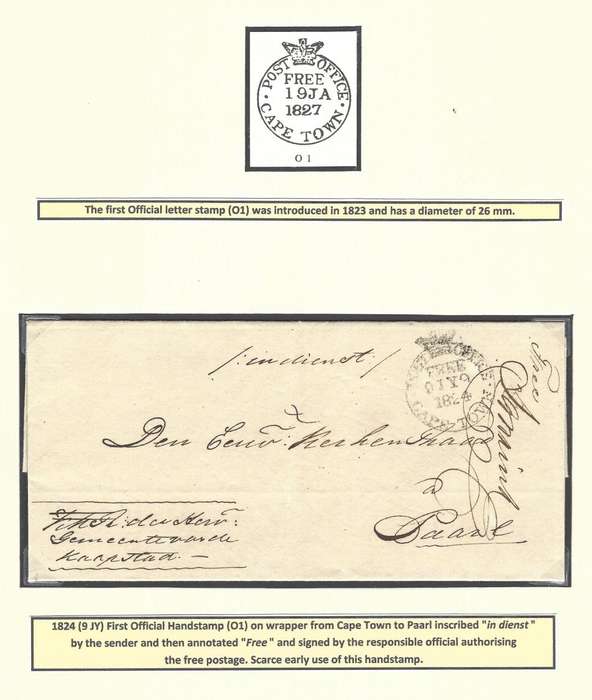 · POST OFFICE ·
FREE
19JA
1827
CAPE TOWN
O1
The first Official letter stamp (O1) was introduced in 1823 and has a diameter of 26 mm.
/: in dienst :/
POST OFFICE
FREE
9JY
1824
CAPE TOWN
Free
Den Eerw: Kerkenraad
à
Paarl
der Herv:
Gemeente
Kaapstad. —
1824 (9 JY) First Official Handstamp (O1) on wrapper from Cape Town to Paarl inscribed "in dienst"
by the sender and then annotated "Free" and signed by the responsible official authorising
the free postage. Scarce early use of this handstamp.